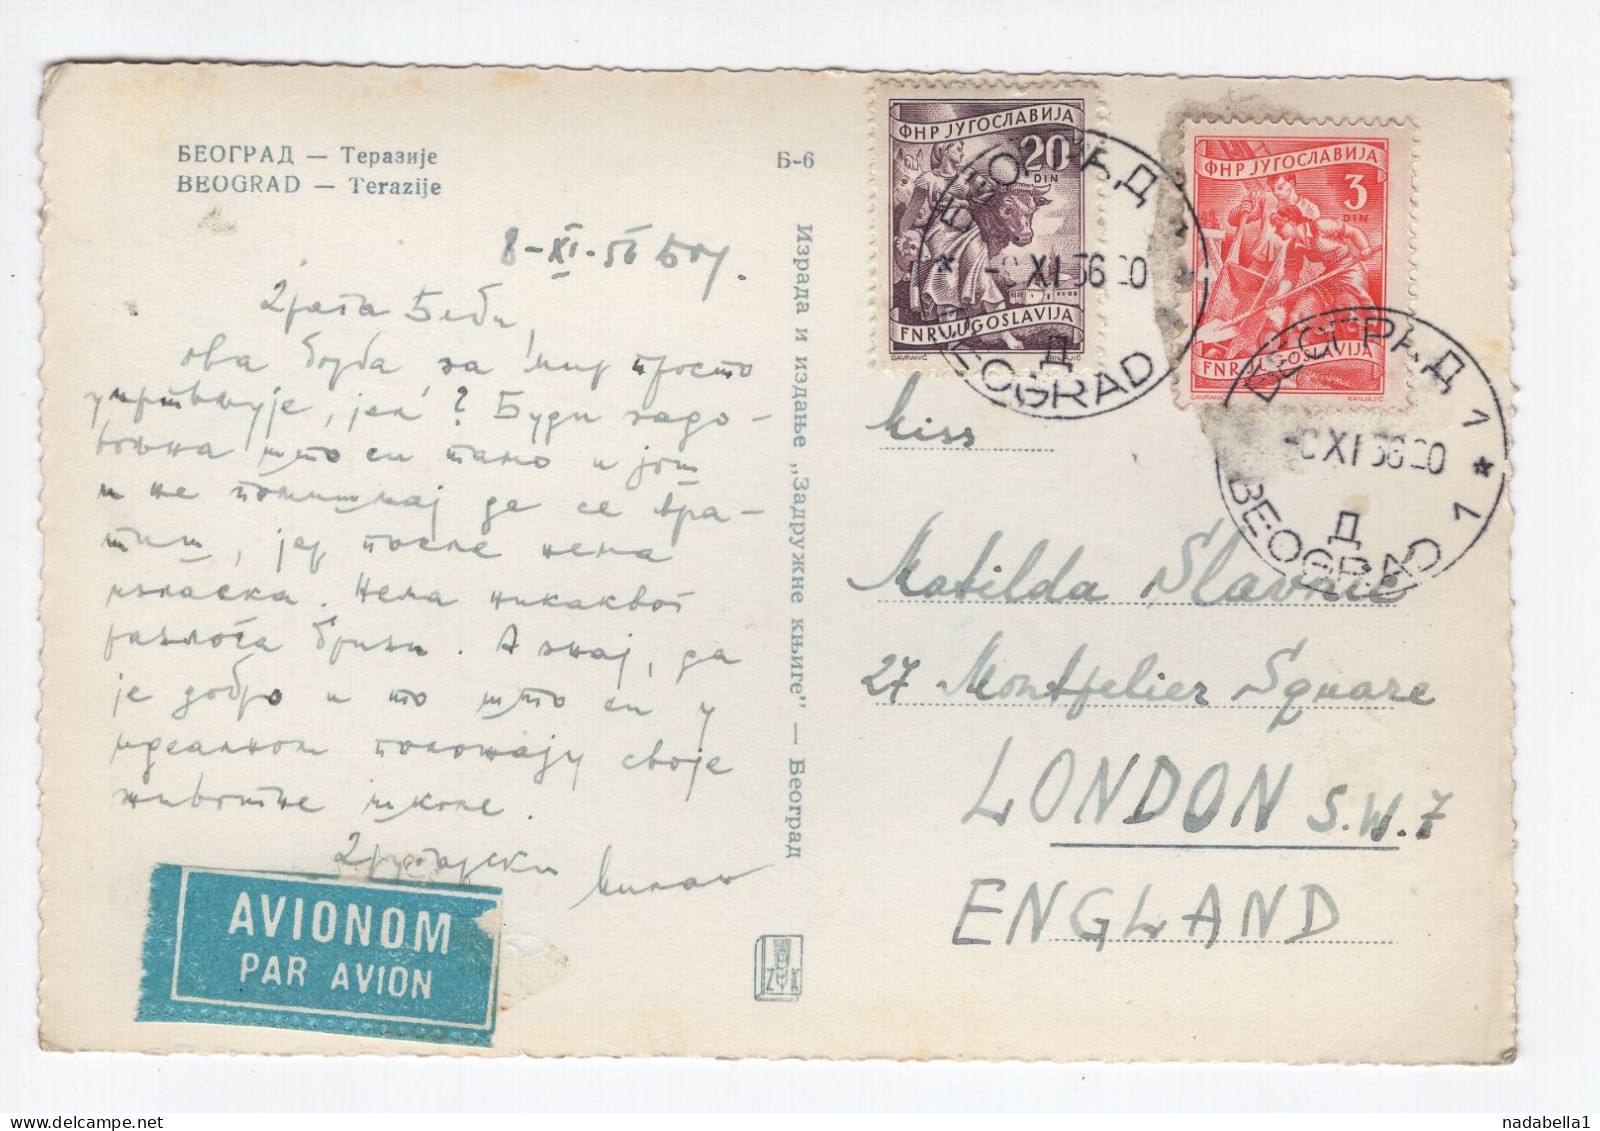 БЕОГРАД — Теразије
BEOGRAD — Terazije
Б-6
8-XI-56 Бгд.
Драга Беби,
ова борба за мир просто
умртвљује, јел'? Буди задо-
вољна што си тамо и још
и не помишљај да се вра-
тиш, јер после нема
изласка. Нема никаквог
разлога бризи. А знај, да
је добро и то што си у
идеалном положају своје
животне школе.
Другарски Милан
AVIONOM
PAR AVION
Израда и издање „Задружне књиге" — Београд
Z K
ФНР ЈУГОСЛАВИЈА
20
DIN
FNR JUGOSLAVIJA
GAVRANIĆ
ФНР ЈУГОСЛАВИЈА
3
DIN
FNR JUGOSLAVIJA
GAVRANIĆ RANJAJIĆ
БЕОГРАД 1
XI 56
Д
BEOGRAD
БЕОГРАД 1
XI 56
Д
BEOGRAD 1
Miss
Matilda Slavnic
27 Montpelier Square
LONDON S.W.7
ENGLAND
nadabella1